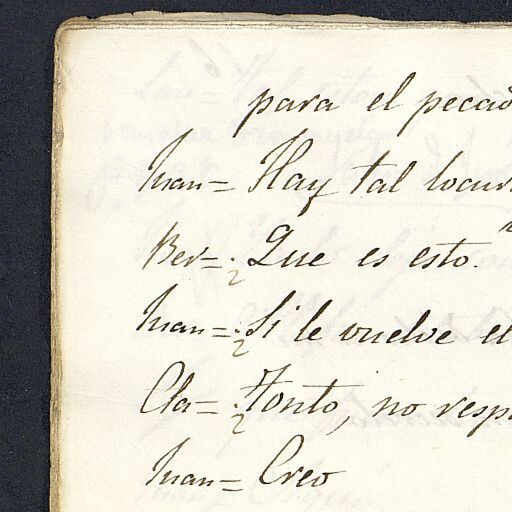 para el pecad
Juan = Hay tal locur
Ber = ¿Que es esto.
Juan = ¿Si le vuelve el
Cla = ¿Tonto, no resp
Juan = Creo